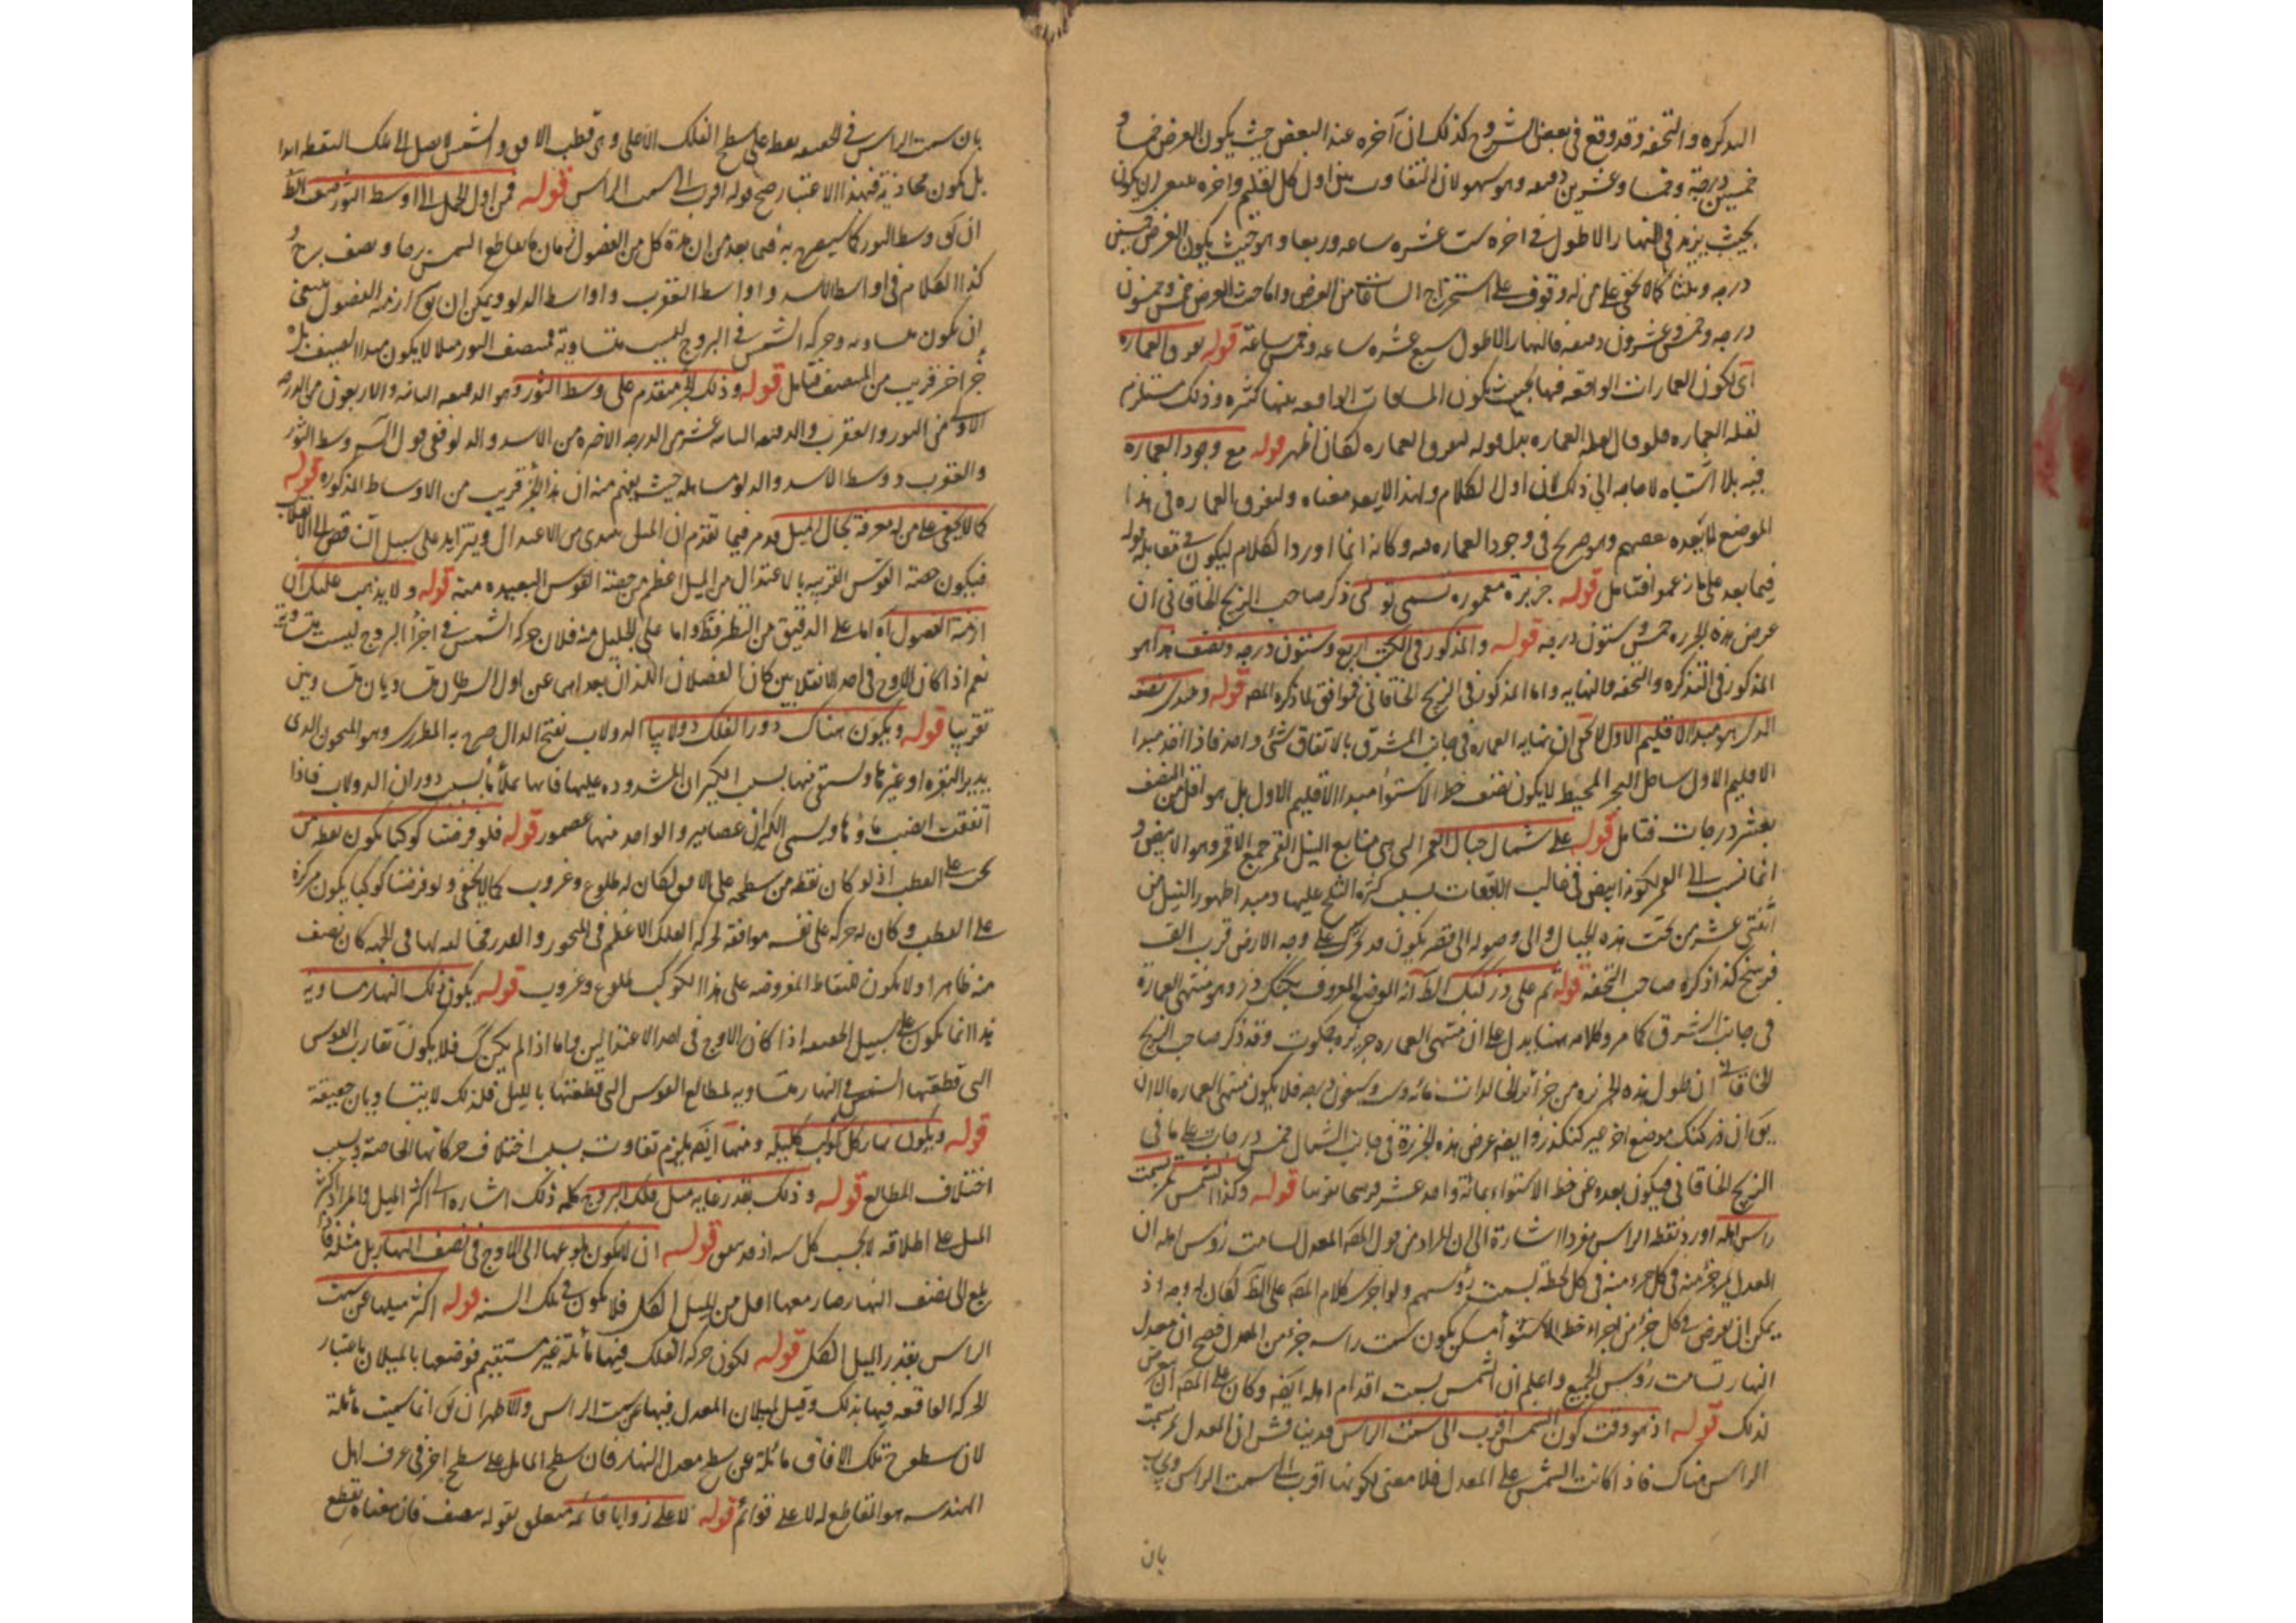 التذكره والتحفه وقد وقع في بعض الشروح كذلك ان آخره عند البعض حيث يكون العرض خمسا و
خمسين درجة وخمسا وعشرين دقيقه وهو سهو لان التفاوت بين اول كل اقليم واخره ان يكون
بحيث يزيد في النهار الاطول في اخره ست عشره ساعه وربعا وهو حيث يكون العرض خمسين
درجه وثلثا كما لا يخفى على من له وقوف على استخراج الساعات من العرض واما حيث العرض خمس وخمسون
درجه وخمس وعشرون دقيقه فالنهار الاطول سبع عشره ساعه وخمس ساعة قوله العماره
اي لكون العمارات الواقعه فيها بحيث يكون المسافات الواقعه بينها كثيره وذلك مستلزم
لقله العماره فلو قال لقله العماره بدل قوله لتفرق العماره لكان اظهر قوله مع وجود العماره
فيه بلا اشتباه لا حاجه الى ذلك لان اول الكلام ولتفرق العماره في هذا
الموضع بعضهم وهو صريح في وجود العماره فيه وكانه انما اورد الكلام ليكون في مقابله قوله
فيما بعد على ما زعموا فتامل قوله جزيرة معموره تسمى تولى ذكر صاحب الزيج الخاقاني ان
عرض هذه الجزيره خمس وستون درجه قوله والمذكور في الكتب اربع وستون درجه ونصف هذا هو
المذكور في التذكره والتحفه والنهايه واما المذكور في الزيج الخاقاني فموافق لما ذكره المصه قوله
الذي هو مبدا الاقليم الاول لا يخفى ان نهايه العماره في جانب المشرق بالاتفاق شئ واحد فاذا اخذ مبدا
الاقليم الاول ساحل البحر المحيط لا يكون نصف خط الاستوا مبدا الاقليم الاول بل هو اقل من النصف
بعشر درجات فتامل قوله على شمال جبال القمر التي هي منابع النيل القمر جمع الاقمر وهو الابيض و
انما نسب الى القمر لكونها ابيض في غالب الاوقات بسبب كثرة الثلج عليها ومبدا ظهور النيل من
اثنتي عشر من تحت هذه الجبال والى وصوله الى يكون قد تحرك على وجه الارض قرب الف
فرسخ كذا ذكره صاحب التحفه قوله ثم على در كنك الظ انه الموضع المعروف بكنك دز وهو منتهى العمارة
في جانب الشرق كما مر وكلامه ههنا يدل على ان منتهى العماره جزيره وقد ذكر صاحب الزيج
الخاقاني ان طول هذه الجزيره من جزائر الخالدات مائه وست وسبعون درجه فلا يكون منتهى العماره الا ان
يق ان در كنك موضع اخر غير كنكدز وايضه عرض هذه الجزيرة في جانب الشمال خمس درجات على ما في
الزيج الخاقاني فيكون بعده عن خط الاستواء بمائة واحد عشر فرسخا تقريبا قوله وكذا الشمس تمر بسمت
راس اهله اورد لفظه الراس مفردا اشارة الى ان المراد من قول المصه المعدل يسامت رؤس اهله ان
المعدل يمر جزء منه في كل جزء منه في كل لحظة بسمت رؤسهم ولو اجرى كلام المصه على الظ لكان له وجه اذ
يمكن ان يعرض في كل جزء من اجزاء خط الاستواء مسكن يكون سمت راسه جزء من المعدل فصح ان معدل
النهار تسامت رؤس الجميع واعلم ان الشمس بسمت اقدام اهله ايضه وكان على المصه ان يتعرض
لذلك قوله اذ هو وقت كون الشمس اقرب الى سمت الراس قد يناقش ان المعدل يمر بسمت
الراس هناك فاذا كانت الشمس على المعدل فلا معنى لكونها اقرب الى سمت الراس ويجاب
بان
بان سمت الراس في الحقيقه نقطه على سطح الفلك الاعلى وهي قطب الافق والشمس لا يصل الى تلك النقطه ابدا
بل يكون محاذية فبهذا الاعتبار صح قوله اقرب الى سمت الراس قوله فمن اول الحمل الى اوسط الثور صيف الظ
ان يق وسط الثور كما سيصرح به فيما بعد من ان مدة كل من الفصول زمان ما يقاطع الشمس برجا ونصف برج و
كذا الكلام في اواسط الاسد و اواسط العقرب و اواسط الدلو ويمكن ان يق ازمنه الفصول ينبغي
ان يكون متساويه وحركه الشمس في البروج ليست متساوية فمنتصف الثور مثلا لا يكون مبدا الصيف بل
جزء اخر قريب من المنتصف فتامل قوله وذلك الجزء متقدم على وسط الثور وهو الدقيقه الثانيه والاربعون من الدرجه
الاولى من الثور والعقرب والدقيقه الثانيه عشر من الدرجه الاخيره من الاسد والدلو ففي قول وسط الثور
والعقرب ووسط الاسد والدلو مساهله حيث يفهم منه ان هذا الجزء قريب من الاوساط المذكوره قوله
كما لا يخفى على من له معرفة بحال الميل قد مر فيما تقدم ان الميل يبتدى من الاعتدال ويتزايد على سبيل التناقص الى الانقلاب
فيكون حصة القوس القريبه بالاعتدال من الميل اعظم من حصة القوس البعيده منه قوله ولا يذهب عليك ان
ازمنة الفصول اه اما على الدقيق من النظر فظ واما على الجليل منه فلان حركه الشمس في اجزاء البروج ليست متساوية
نعم اذا كان الاوج في احد الانقلابين كان الفصلان اللذان بعداهما عن اول السرطان متساويان متساويين
تقريبا قوله ويكون هناك دور الفلك دولابيا الدولاب بفتح الدال صرح به المطرزي وهو المنجنون الذي
يديره البقره او غيرها ويستقى منها بسبب الكيزان المشدوده عليها فانها تملأ ماء بسبب دوران الدولاب فاذا
اتفقت انصب ماؤها ويسمى الكيزان عصامير والواحد منها عصمور قوله فلو فرضنا كوكبا يكون نقطه من
على القطب اذ لو كان نقطه من سطحه على الافق لكان له طلوع وغروب كما لا يخفى ولو فرضنا كوكبا يكون مركزه
على القطب وكان له حركه على نفسه موافقه لحركه الفلك الاعظم في المحور والقدر مخالفه لها في الجهه كان نصف
منه ظاهرا ولا يكون للنقاط المفروضه على هذا الكوكب طلوع وغروب قوله يكون ذلك النهار مساويه
هذا انما يكون على سبيل الحقيقه اذا كان الاوج في احد الاعتدالين واما اذا لم يكن كك فلا يكون تقارب القوس
التي قطعتها الشمس في النهار متساويه لمطالع القوس التي قطعتها بالليل فلذلك لا يتساويان حقيقة
قوله ويكون نهار كل كوكب كليله ومنها ايضه يلزم تفاوت بسبب اختلاف حركاتها الخاصه وبسبب
اختلاف المطالع قوله وذلك بقدر غايه ميل فلك البروج كلمه ذلك اشاره الى اكثر الميل والمراد اكثر
الميل على اطلاقه لا بحسب كل سنه اذ قد يتفق قوله ان لا يكون بلوغها الى الاوج في نصف النهار بل مثله فاذا
بلغ الى نصف النهار صار معها اقل من الميل الكل فلا يكون في تلك السنه قوله اكثر ميلها عن سمت
الراس بقدر الميل الكل قوله لكون حركه الفلك فيها مائلة غير مستقيم فوضعها بالميلان باعتبار
الحركه الواقعه فيها بذلك وقيل لميلان المعدل فيها عن سمت الراس والاظهر ان يق انما سميت مائلة
لان سطوح تلك الافاق مائلة عن سطح معدل النهار فان سطح المايل على سطح اخر في عرف اهل
الهندسه هو القاطع له لا على قوائم قوله لا على زوايا قائمه متعلق بقوله ينصف فان معناه يقطع